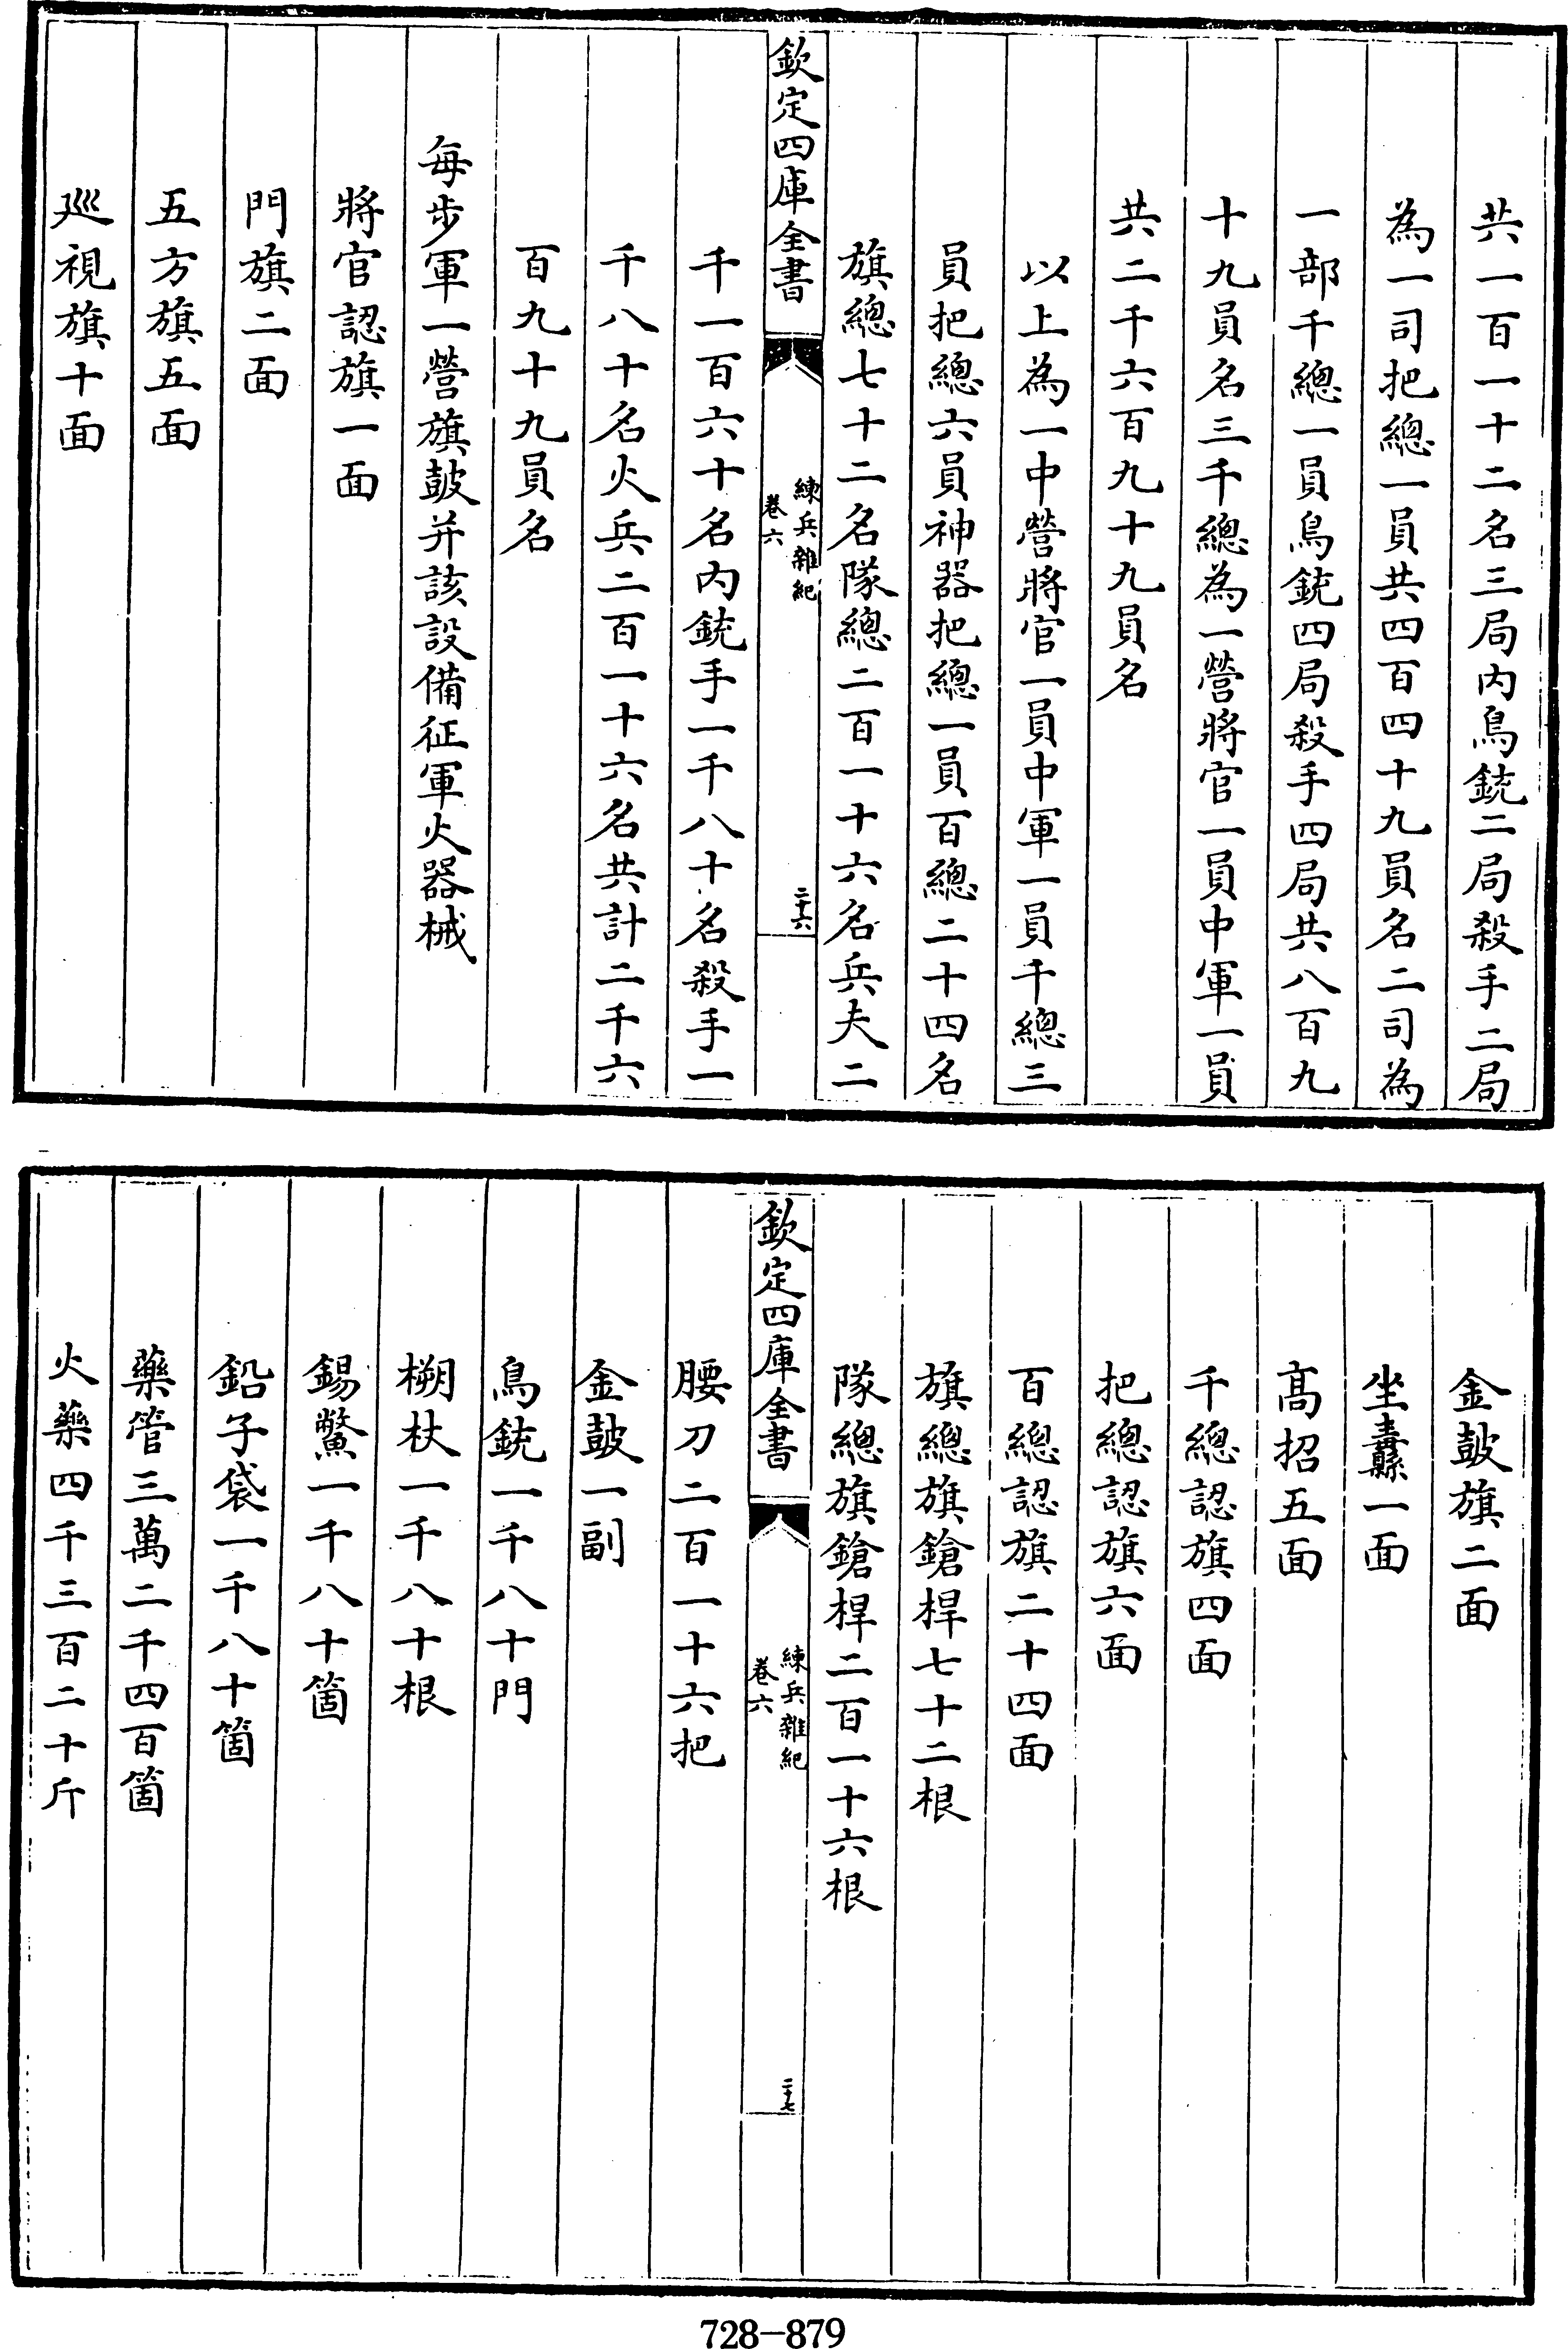 共一百一十二名三局内鳥銃二局殺手二局
為一司把總一員共四百四十九員名二司為
一部千總一員鳥銃四局殺手四局共八百九
十九員名三千總為一營將官一員中軍一員
共二千六百九十九員名
以上為一中營將官一員中軍一員千總三
員把總六員神器把總一員百總二十四名
旗總七十二名隊總二百一十六名兵夫二
欽定四庫全書
練兵雜紀
卷六
二十六
千一百六十名内銃手一千八十名殺手一
千八十名火兵二百一十六名共計二千六
百九十九員名
每步軍一營旗鼓并該設備征軍火器械
將官認旗一面
門旗二面
五方旗五面
廵視旗十面
金鼓旗二面
坐纛一面
髙招五面
千總認旗四面
把總認旗六面
百總認旗二十四面
旗總旗鎗桿七十二根
隊總旗鎗桿二百一十六根
欽定四庫全書
練兵雜紀
卷六
二十七
腰刀二百一十六把
金鼓一副
鳥銃一千八十門
槊杖一千八十根
錫鱉一千八十箇
鉛子袋一千八十箇
藥管三萬二千四百箇
火藥四千三百二十斤
728-879